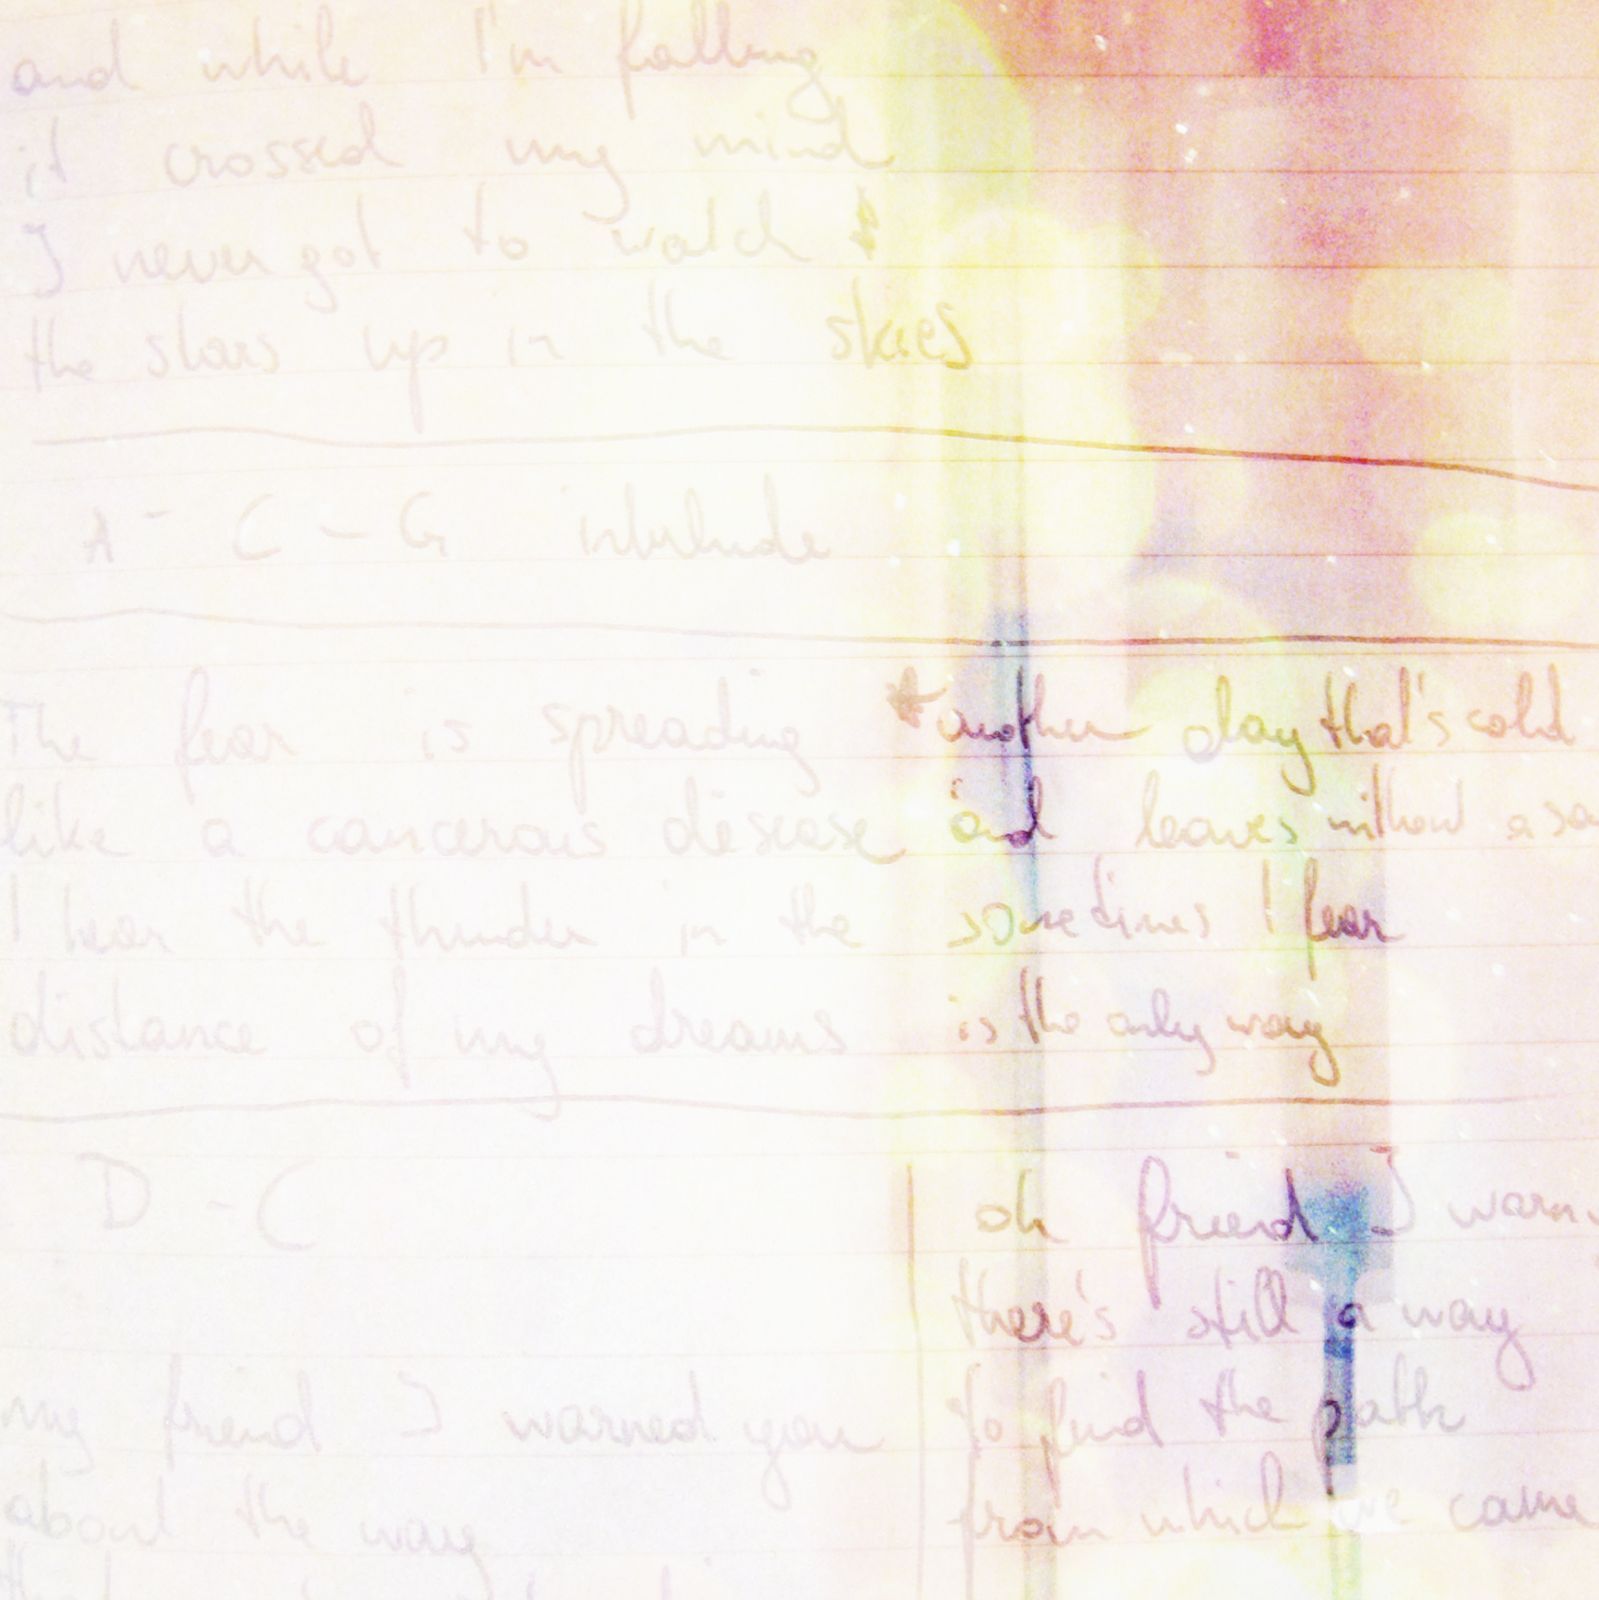 and while I'm falling
it crossed my mind
I never got to watch
the stars up in the skies
A - C - G interlude
The fear is spreading
like a cancerous disease
I hear the thunder in the
distance of my dreams
* another day that's cold
and leaves without a
sometimes I fear
is the only way
D - C
my friend I warned you
about the way
oh friend I
there's still a way
to find the path
from which we came